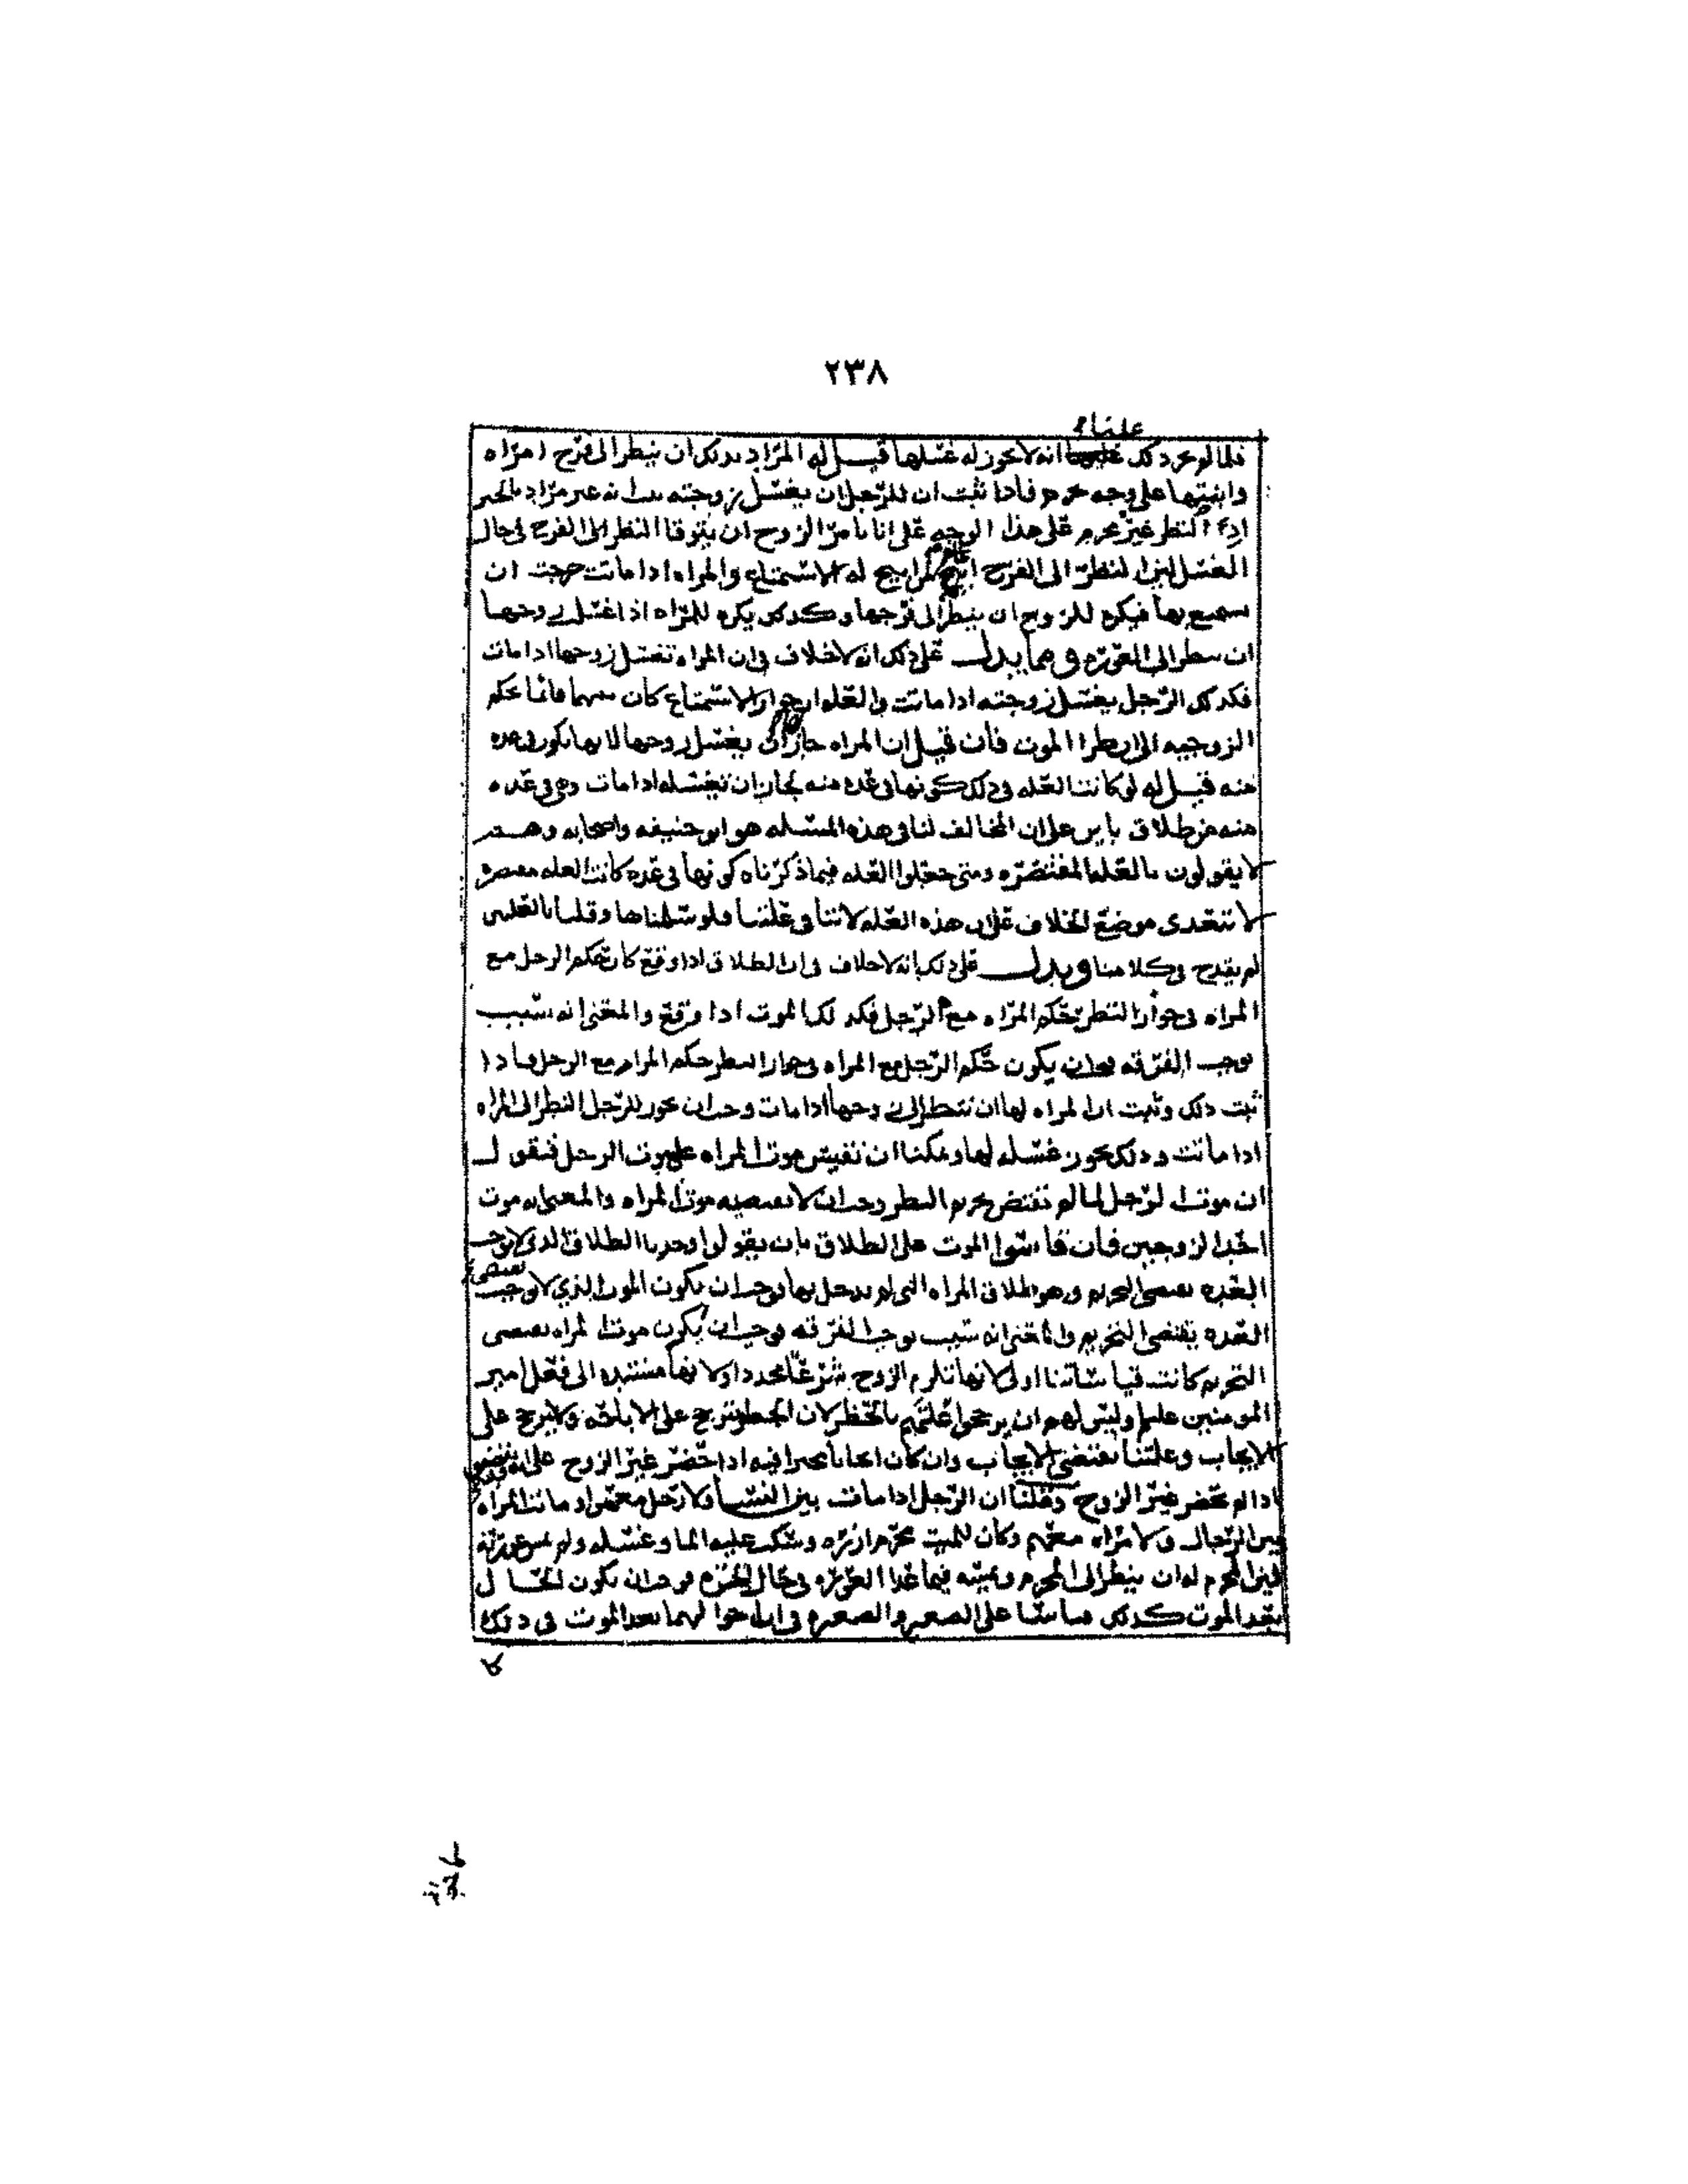 ٢٣٨
علمنا
فلما لم يجز ذلك انه لا يجوز له غسلها قيل له المراد بذلك ان ينظر الى فرج امراه
وابنتها على وجه محرم فاذا ثبت ان للرجل ان يغسل زوجته بينا انه غير مراد بالخبر
اذ النظر غير محرم على هذا الوجه على انا نامر الزوج ان يتوقا النظر الى الفرج في حال
الغسل لان النظر الى الفرج ابيح لمن ابيح له الاستمتاع والمراه اذا ماتت خرجت ان
يستمتع بها فيكره للزوج ان ينظر الى فرجها وكذلك يكره للمراه اذا غسلت زوجها
ان ينظر الى العوره ومما يدل على ذلك انه لا خلاف في ان المراه تغسل زوجها اذا مات
فكذلك الرجل يغسل زوجته اذا ماتت والعله ان جواز الاستمتاع كان بينهما قائما بحكم
الزوجيه الى ان طرا الموت فان قيل ان المراه جاز ان تغسل زوجها لانها تكون في عده
منه قيل له لو كانت العله في ذلك كونها في عده منه لجاز ان تغسله اذا مات وهي في عده
منه من طلاق باين على ان المخالف لنا في هذه المسئله هو ابو حنيفه واصحابه وهم
لا يقولون بالعله المقتصره ومتى جعلوا العله فيما ذكرناه كونها في عده كانت العله مقتصره
لا تتعدى موضع الخلاف على ان هذه العله لا تنافي علتنا ولو سلمناها وقلنا بالعلتين
لم يقدح في كلامنا ويدل على ذلك انه لا خلاف في ان الطلاق اذا وقع كان حكم الرجل مع
المراه في جواز النظر حكم المراه مع الرجل فكذلك الموت اذا وقع والمعنى انه سبب
يوجب الفرقه فوجب ان يكون حكم الرجل مع المراه في جواز النظر حكم المراه مع الرجل فاذا
ثبت ذلك وثبت ان المراه لها ان تنظر الى زوجها اذا مات وجب ان يجوز للرجل النظر الى المراه
اذا ماتت وكذلك يجوز غسله لها ويمكننا ان نقيس موت المراه على موت الرجل فنقول
ان موت الرجل لما لم يقتض تحريم النظر وجب ان لا يقتضيه موت المراه والمعنى انه موت
احد الزوجين فان قاسوا الموت على الطلاق بان يقولوا وجدنا الطلاق الذي لا يوجب
العده يقتضي التحريم وهو طلاق المراه التي لم يدخل بها فوجب ان يكون الموت الذي لا يوجب
العده يقتضي التحريم والمعنى انه سبب يوجب الفرقه فوجب ان يكون موت المراه يقتضي
التحريم كانت قياساتنا اولى لانها تلزم الزوج شرعا مجددا ولانها مستنده الى فعل امير
المومنين عليلم وليس لهم ان يرجحوا علتهم بالحظر لان الحظر يترجح على الاباحه ولا يترجح على
الايجاب وعلتنا تقتضي الايجاب وان كان ايجابا مخيرا فيه اذا حضر غير الزوج على انه
اذا لم يحضر غير الزوج وقلنا ان الرجل اذا مات بين النساء ولا رجل معهن او ماتت المراه
بين الرجال ولا امراه معهم وكان للميت محرم ازره وسكب عليه الما وغسله ولم يمس عورته
لان المحرم له ان ينظر الى المحرم ويمسه فيما عدا العوره في حال الحيوه فوجب ان تكون الحال
بعد الموت كذلك قياسا على الصغير والصغيره في ان احوالهما بعد الموت في ذلك